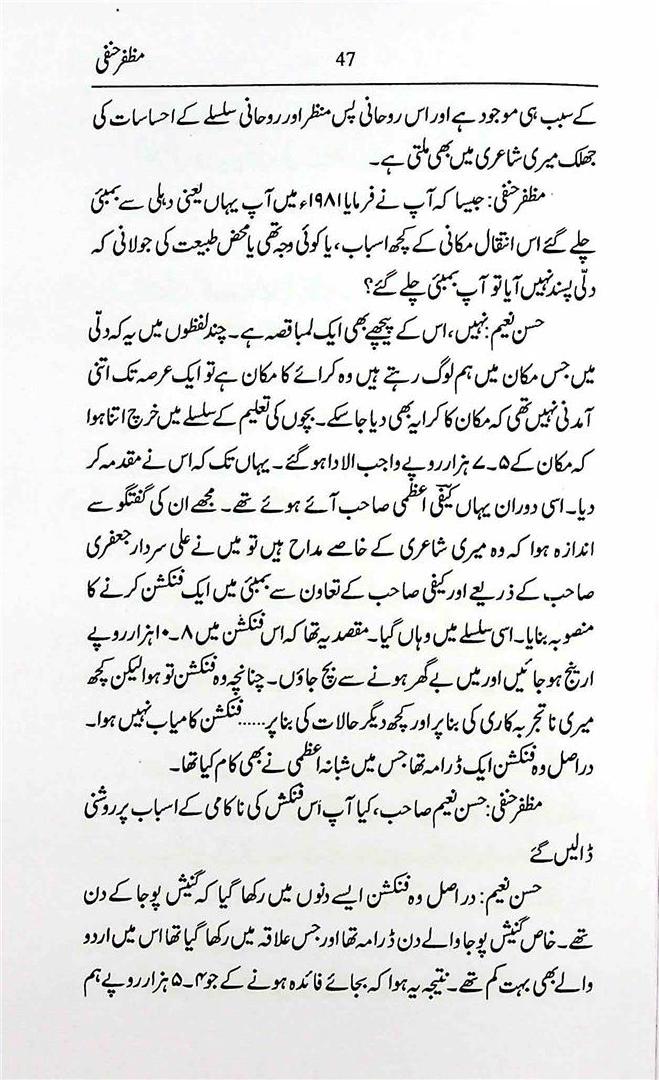 مظفر حنفی 47
کے سبب ہی موجود ہے اور اس روحانی پس منظر اور روحانی سلسلے کے احساسات کی
جھلک میری شاعری میں بھی ملتی ہے۔
مظفر حنفی: جیسا کہ آپ نے فرمایا ۱۹۸۱ء میں آپ یہاں یعنی دہلی سے بمبئی
چلے گئے اس انتقال مکانی کے کچھ اسباب، یا کوئی وجہ تھی یا محض طبیعت کی جولانی کہ
دلّی پسند نہیں آیا تو آپ بمبئی چلے گئے؟
حسن نعیم: نہیں، اس کے پیچھے بھی ایک لمبا قصہ ہے۔ چند لفظوں میں یہ کہ دلّی
میں جس مکان میں ہم لوگ رہتے ہیں وہ کرائے کا مکان ہے تو ایک عرصہ تک اتنی
آمدنی نہیں تھی کہ مکان کا کرایہ بھی دیا جا سکے۔ بچوں کی تعلیم کے سلسلے میں خرچ اتنا ہوا
کہ مکان کے ۵۔۷ ہزار روپے واجب الادا ہو گئے۔ یہاں تک کہ اس نے مقدمہ کر
دیا۔ اسی دوران یہاں کیفی اعظمی صاحب آئے ہوئے تھے۔ مجھے ان کی گفتگو سے
اندازہ ہوا کہ وہ میری شاعری کے خاصے مداح ہیں تو میں نے علی سردار جعفری
صاحب کے ذریعے اور کیفی صاحب کے تعاون سے بمبئی میں ایک فنکشن کرنے کا
منصوبہ بنایا۔ اسی سلسلے میں وہاں گیا۔ مقصد یہ تھا کہ اس فنکشن میں ۸۔۱۰ ہزار روپے
ارینج ہو جائیں اور میں بے گھر ہونے سے بچ جاؤں۔ چنانچہ وہ فنکشن تو ہوا لیکن کچھ
میری ناتجربہ کاری کی بنا پر اور کچھ دیگر حالات کی بنا پر...... فنکشن کامیاب نہیں ہوا۔
دراصل وہ فنکشن ایک ڈرامہ تھا جس میں شبانہ اعظمی نے بھی کام کیا تھا۔
مظفر حنفی: حسن نعیم صاحب، کیا آپ اس فنکش کی ناکامی کے اسباب پر روشنی
ڈالیں گے
حسن نعیم: دراصل وہ فنکشن ایسے دنوں میں رکھا گیا کہ گنیش پوجا کے دن
تھے۔ خاص گنیش پوجا والے دن ڈرامہ تھا اور جس علاقہ میں رکھا گیا تھا اس میں اردو
والے بھی بہت کم تھے۔ نتیجہ یہ ہوا کہ بجائے فائدہ ہونے کے جو ۴۔۵ ہزار روپے ہم